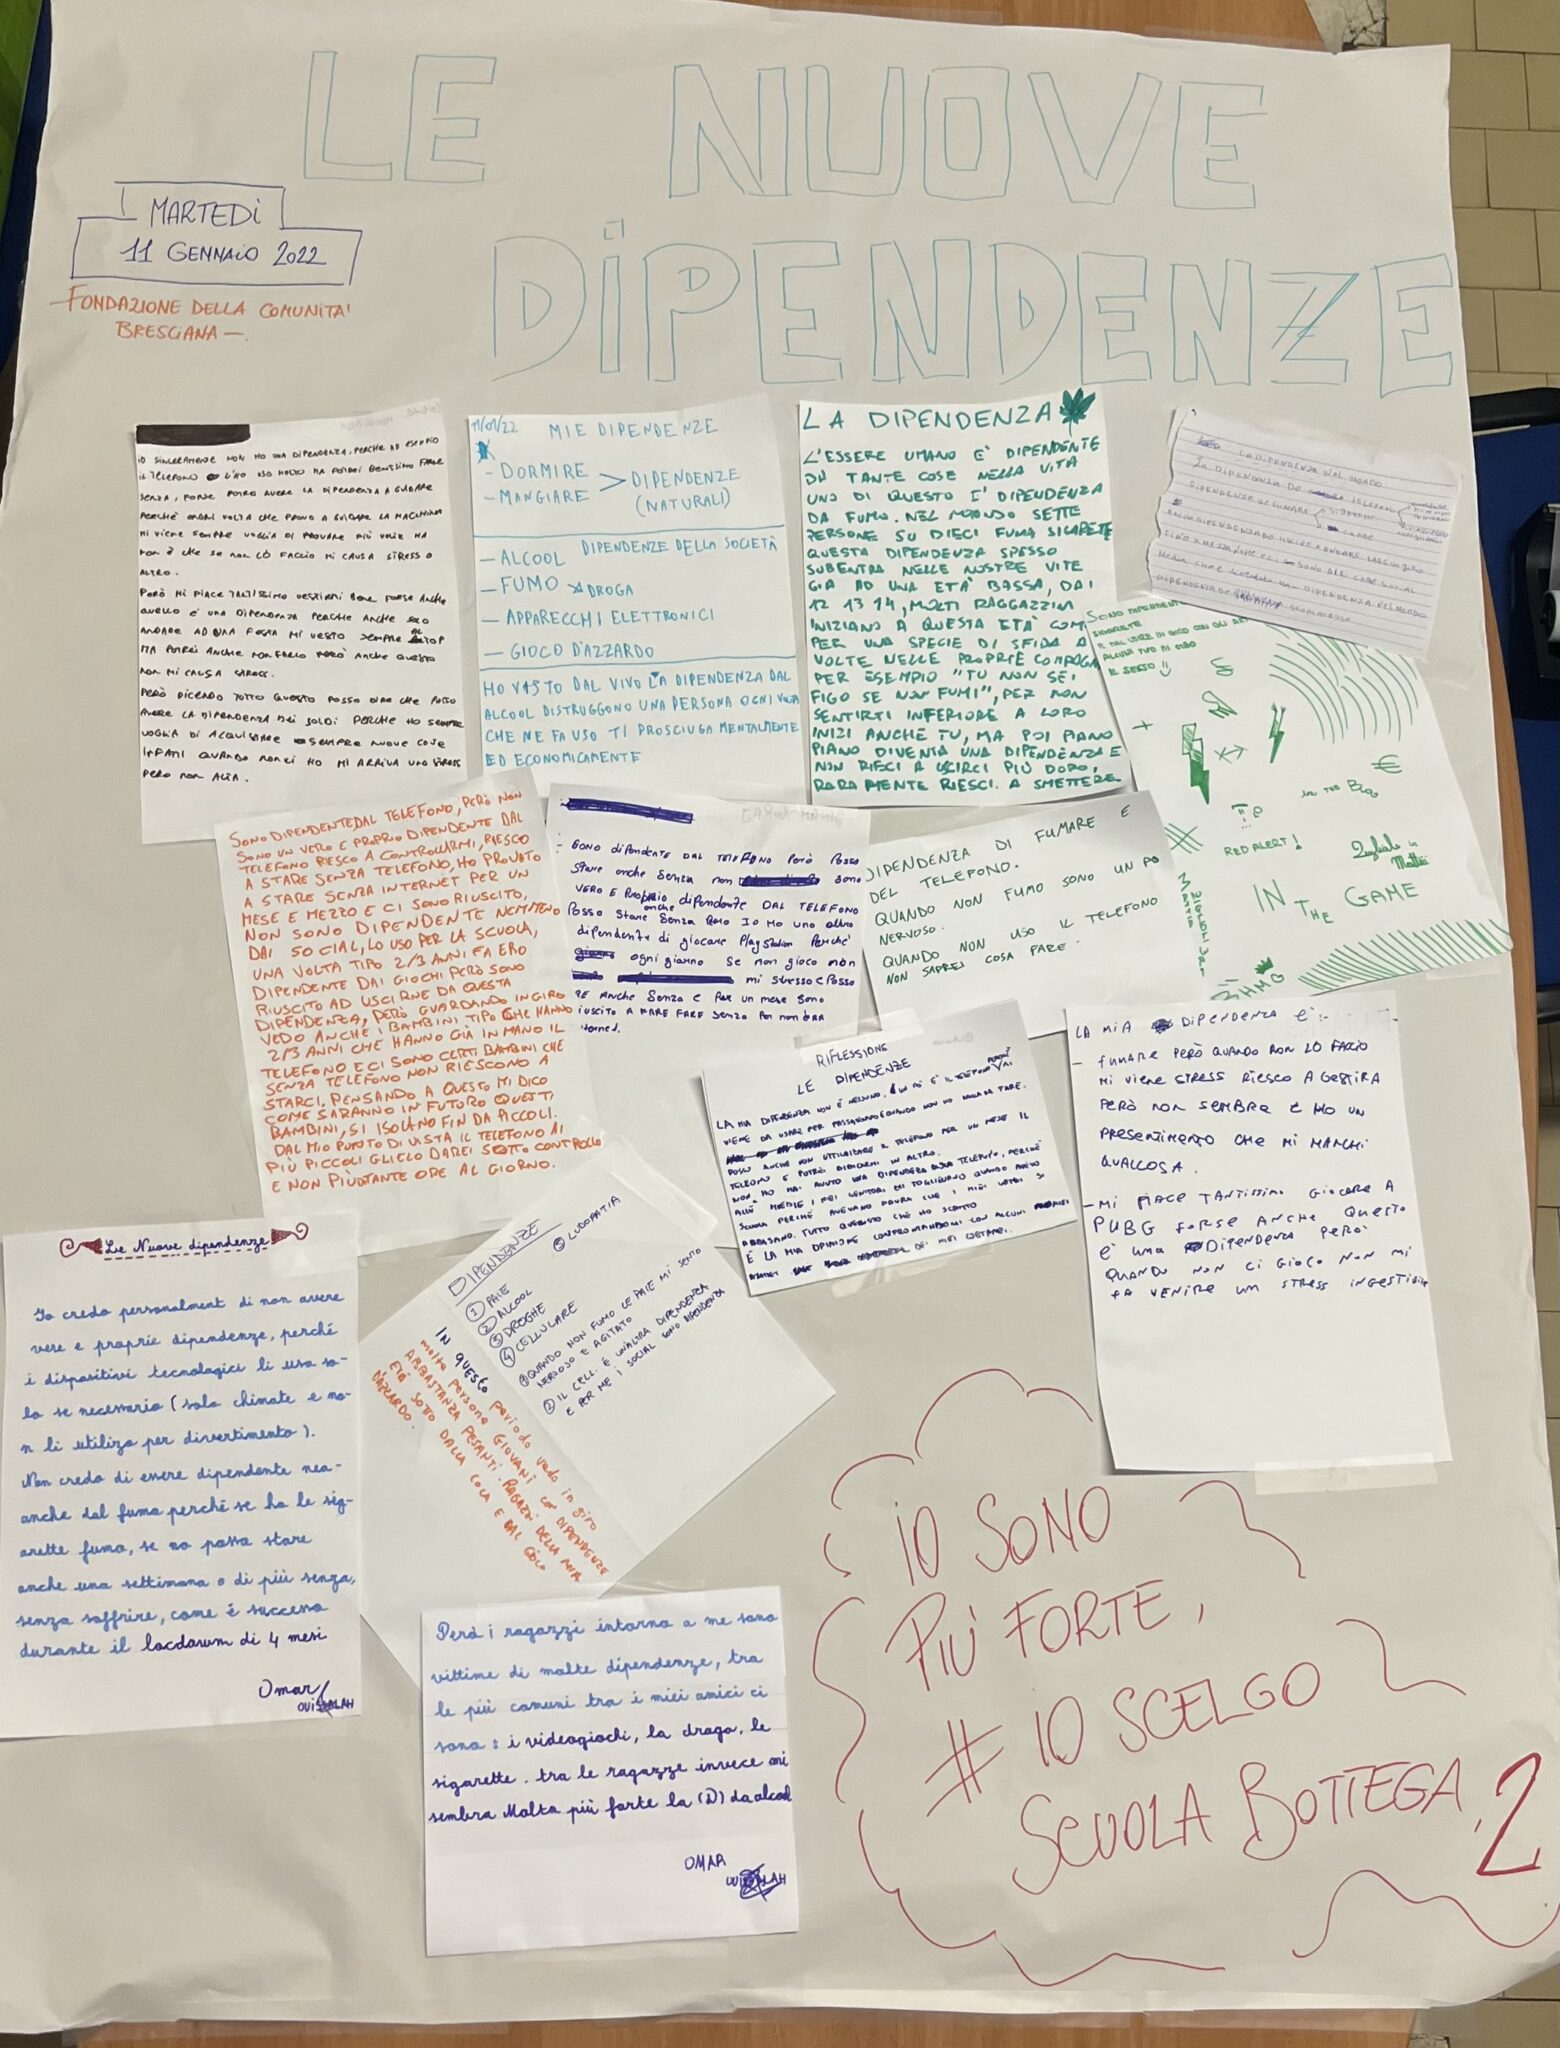 LE NUOVE
DIPENDENZE
MARTEDÌ
11 GENNAIO 2022
—FONDAZIONE DELLA COMUNITA'
BRESCIANA—
IO SINCERAMENTE NON HO UNA DIPENDENZA, PERCHE AD ESEMPIO
IL TELEFONO LO USO MOLTO MA POTREI BENISSIMO FARNE
SENZA, FORSE POTREI AVERE LA DIPENDENZA A GUIDARE
PERCHÈ OGNI VOLTA CHE PROVO A GUIDARE LA MACCHINA
MI VIENE SEMPRE VOGLIA DI PROVARE PIÙ VOLTE MA
NON È CHE SE NON LO FACCIO MI CAUSA STRESS O
ALTRO.
PERÒ MI PIACE TANTISSIMO VESTIRMI BENE FORSE ANCHE
QUELLO È UNA DIPENDENZA PERCHE ANCHE SOLO
ANDARE AD UNA FESTA MI VESTO SEMPRE AL TOP
MA POTREI ANCHE NON FARLO PERÒ ANCHE QUESTO
NON MI CAUSA STRESS.
PERÒ DICENDO TUTTO QUESTO POSSO DIRE CHE POSSO
AVERE LA DIPENDENZA DEI SOLDI PERCHE HO SEMPRE
VOGLIA DI ACQUISTARE SEMPRE NUOVE COSE
INFATTI QUANDO NON CI HO MI ARRIVA UNO STRESS
PERO NON ALTA.
11/01/22 MIE DIPENDENZE
- DORMIRE
- MANGIARE > DIPENDENZE
(NATURALI)
DIPENDENZE DELLA SOCIETÀ
— ALCOOL
— FUMO ↘ DROGA
— APPARECCHI ELETTRONICI
— GIOCO D'AZZARDO
HO VISTO DAL VIVO LA DIPENDENZA DAL
ALCOOL DISTRUGGONO UNA PERSONA OGNI VOLTA
CHE NE FA USO TI PROSCIUGA MENTALMENTE
ED ECONOMICAMENTE
LA DIPENDENZA
L'ESSERE UMANO È DIPENDENTE
DI TANTE COSE NELLA VITA
UNO DI QUESTO E' DIPENDENZA
DA FUMO. NEL MONDO SETTE
PERSONE SU DIECI FUMA SIGARETE
QUESTA DIPENDENZA SPESSO
SUBENTRA NELLE NOSTRE VITE
GIA AD UNA ETÀ BASSA, DAI
12 13 14, MOLTI RAGGAZZINI
INIZIANO A QUESTA ETÀ COM
PER UNA SPECIE DI SFIDA A
VOLTE NELLE PROPRIE COMPAGN
PER ESEMPIO "TU NON SEI
FIGO SE NON FUMI", PER NON
SENTIRTI INFERIORE A LORO
INIZI ANCHE TU, MA POI PIANO
PIANO DIVENTA UNA DIPENDENZA E
NON RIESCI A USCIRCI PIÙ DOPO,
RARAMENTE RIESCI. A SMETTERE
LA DIPENDENZA DAL MONDO
LA DIPENDENZA DE TELEFONO
DIPENDENZA DE FUMARE SIGARETTE
CANNE
SONO DIPENDENTE
SIGARETTE
ALCUNI TIPO DI CIBO
IL SESSO
€
RED ALERT!
IN THE GAME
MATTIA
BHMG
SONO DIPENDENTE DAL TELEFONO, PERÒ NON
SONO UN VERO E PROPRIO DIPENDENTE DAL
TELEFONO RIESCO A CONTROLLARMI, RIESCO
A STARE SENZA TELEFONO, HO PROVATO
A STARE SENZA INTERNET PER UN
MESE E MEZZO E CI SONO RIUSCITO,
NON SONO DIPENDENTE NEMMENO
DAI SOCIAL, LO USO PER LA SCUOLA,
UNA VOLTA TIPO 2/3 ANNI FA ERO
DIPENDENTE DAI GIOCHI PERÒ SONO
RIUSCITO AD USCIRNE DA QUESTA
DIPENDENZA, PERÒ GUARDANDO IN GIRO
VEDO ANCHE I BAMBINI TIPO CHE HANNO
2/3 ANNI CHE HANNO GIÀ IN MANO IL
TELEFONO E CI SONO CERTI BAMBINI CHE
SENZA TELEFONO NON RIESCONO A
STARCI. PENSANDO A QUESTO MI DICO
COME SARANNO IN FUTURO QUESTI
BAMBINI, SI ISOLANO FIN DA PICCOLI.
DAL MIO PUNTO DI VISTA IL TELEFONO AI
PIÙ PICCOLI GLIELO DAREI SOTTO CONTROLLO
E NON PIÙ TANTE ORE AL GIORNO.
SONO dipendente DAL TELEFONO Però Posso
Stare anche Senza non sono
VERO E Proprio dipendente DAL TELEFONO
Posso Stare anche Senza Però Io Ho uno altro
dipendente di giocare PlayStation Perché
ogni giorno se non gioco non
mi stresso e Posso
RE Anche Senza E Per un mese sono
iuscito A FARE FARE Senza Poi non ERA
ternet.
DIPENDENZA DI FUMARE E
DEL TELEFONO.
QUANDO NON FUMO SONO UN PO
NERVOSO.
QUANDO NON USO IL TELEFONO
NON SAPREI COSA FARE.
RIFLESSIONE
LE DIPENDENZE
LA MIA DIPENDENZA NON È NESSUNO,
POSSO ANCHE NON UTILIZZARE IL TELEFONO PER UN MESE IL
TELEFONO E POTREI DEDICARMI IN ALTRO.
NON HO MAI AVUTO UNA DIPENDENZA SULLA TELEFONO, PERCHÉ
ALLE MEDIE I MIEI GENITORI MI TOGLIEVANO QUANDO AVEVO
SCUOLA PERCHÉ AVEVANO PAURA CHE I MIEI VOTI SI
ABBASSANO. TUTTO QUESTO CHE HO SCRITTO
È LA MIA OPINIONE CONFRONTANDOMI CON ALCUNI
DEI MIEI COETANEI.
LA MIA DIPENDENZA È:
- FUMARE PERÒ QUANDO NON LO FACCIO
MI VIENE STRESS RIESCO A GESTIRA
PERÒ NON SEMBRA E HO UN
PRESENTIMENTO CHE MI MANCHI
QUALCOSA.
- MI PIACE TANTISSIMO GIOCARE A
PUBG FORSE ANCHE QUESTO
È UNA DIPENDENZA PERÒ
QUANDO NON CI GIOCO NON MI
FA VENIRE UN STRESS INGESTIBILE
Le Nuove dipendenze
Io credo personalment di non avere
vere e proprie dipendenze, perché
i dispositivi tecnologici li uso so-
lo se necessario (solo chimate e no-
n li utilizo per divertimento).
Non credo di essere dipendente nea-
anche dal fumo perché se ho le sig-
arette fumo, se no posso stare
anche una settimana o di più senza,
senza soffrire, come è successo
durante il locdawm di 4 mesi
Omar
DIPENDENZE
① PAIE
② ALCOOL
③ DROGHE
④ CELLULARE
⑤ LUDOPATIA
① QUANDO NON FUMO LE PAIE MI SENTO
NERVOSO E AGITATO
② IL CELL. È UN'ALTRA DIPENDENZA
E PER ME I SOCIAL SONO DIPENDENZA
IN QUESTO periodo vedo in giro
molte persone GIOVANI con DIPENDENZE
ABBASTANZA PESANTI. RAGAZZI DELLA MIA
ETÀ SOTTO DALLA COCA E DAL GIOCO
D'AZZARDO.
Però i ragazzi intorno a me sono
vittime di molte dipendenze, tra
le più comuni tra i miei amici ci
sono: i videogiochi, la droga, le
sigarette. tra le ragazze invece mi
sembra Molto più forte la (D) da alcool
OMAR
IO SONO
PIÙ FORTE,
# IO SCELGO
SCUOLA BOTTEGA. 2